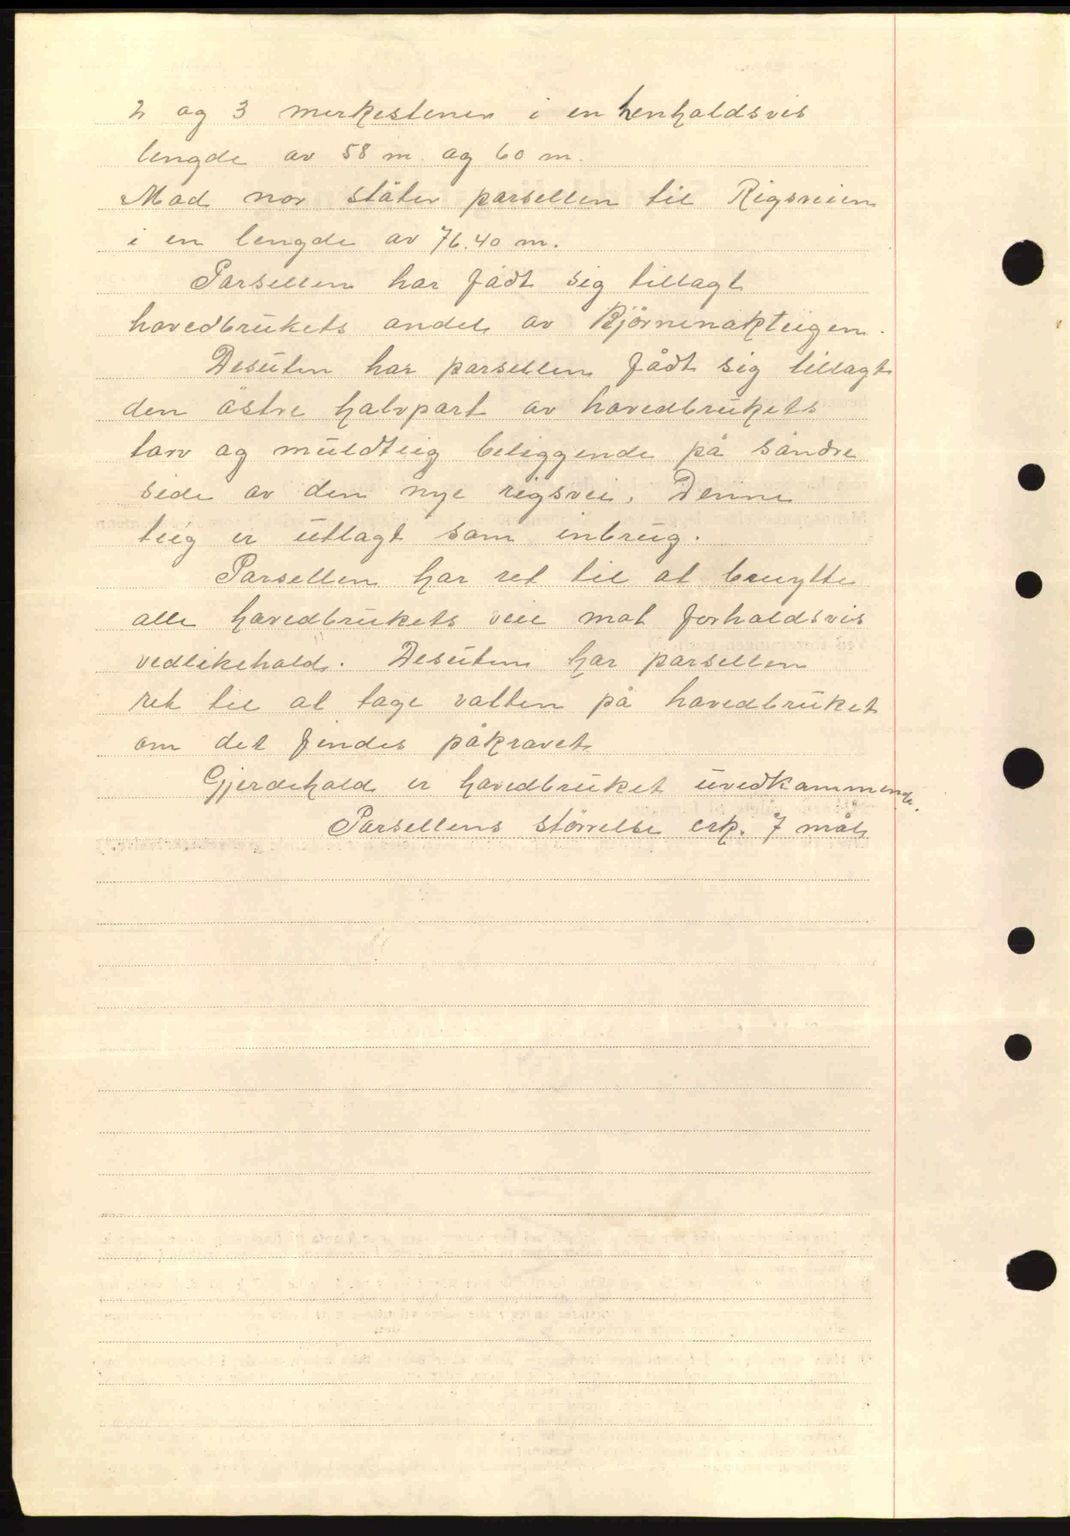 2 og 3 merkestener i en henholdsvis
lengde av 58 m. og 60 m.
Mod nor støter parsellen til Rigsveien
i en lengde av 76.40 m.
Parsellen har fådt sig tillagt
hovedbrukets andel av Bjørnenakteigen.
Desuten har parsellen fådt sig tillagt
den østre halvpart av hovedbrukets
torv og muldteig beliggende på søndre
side av den nye rigsvei. Denne
teig er utlagt som inbrug.
Parsellen har ret til at benytte
alle hovedbrukets veie mot forholdsvis
vedlikehold. Desuten har parsellen
ret til at tage vatten på hovedbruket
om det findes påkrævet
Gjerdehold er hovedbruket uvedkommende.
Parsellens størrelse crk. 7 mål